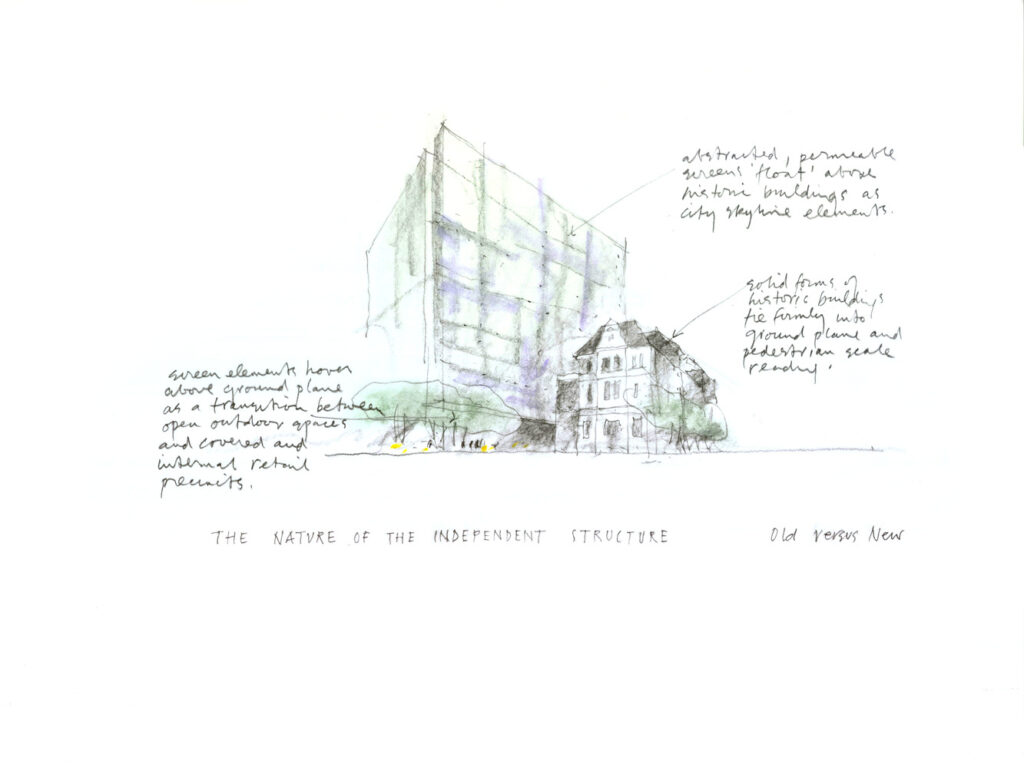 abstracted, permeable
screens 'float' above
historic buildings as
city skyline elements.
solid forms of
historic buildings
tie firmly into
ground plane and
pedestrian scale
reading.
screen elements hover
above ground plane
as a transition between
open outdoor spaces
and covered and
internal retail
precincts.
THE NATURE OF THE INDEPENDENT STRUCTURE
Old versus New